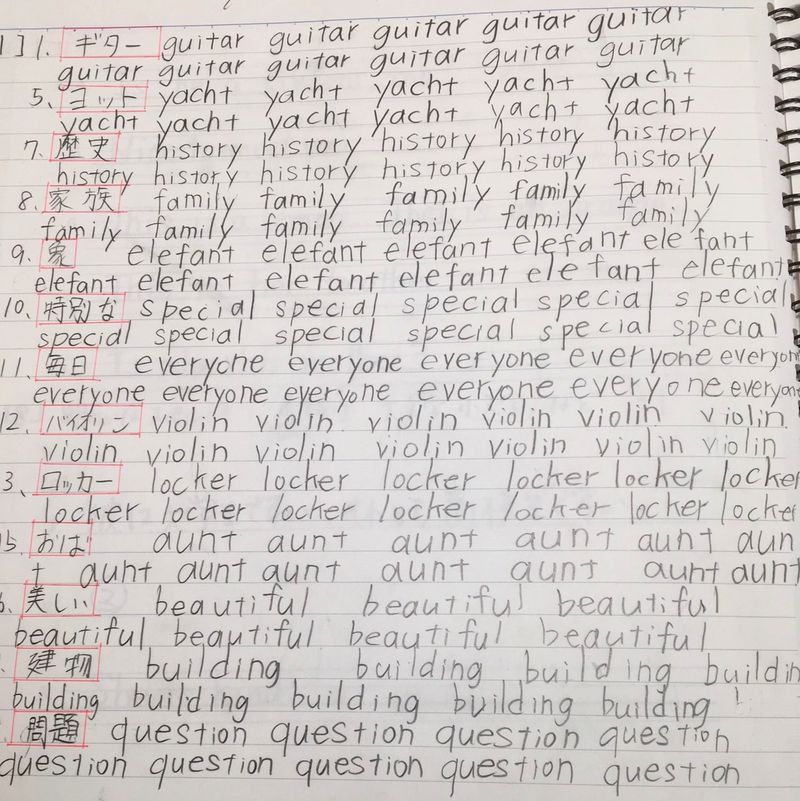 1] 1. ギター guitar guitar guitar guitar guitar
guitar guitar guitar guitar guitar guitar
5、ヨット yacht yacht yacht yacht yacht
yacht yacht yacht yacht yacht yacht
7、歴史 history history history history history
history history history history history history
8、家族 family family family family family
family family family family family family
9、象 elefant elefant elefant elefant elefant
elefant elefant elefant elefant elefant elefant
10、特別な special special special special special
special special special special special special
11、毎日 everyone everyone everyone everyone everyone
everyone everyone everyone everyone everyone everyone
12、バイオリン violin violin violin violin violin violin
violin violin violin violin violin violin violin
3、ロッカー locker locker locker locker locker locker
locker locker locker locker locker locker locker
15、おば aunt aunt aunt aunt aunt aun
t aunt aunt aunt aunt aunt aunt aunt
6、美しい beautiful beautiful beautiful
beautiful beautiful beautiful beautiful
建物 building building building buildin
building building building building building
問題 question question question question question
question question question question question